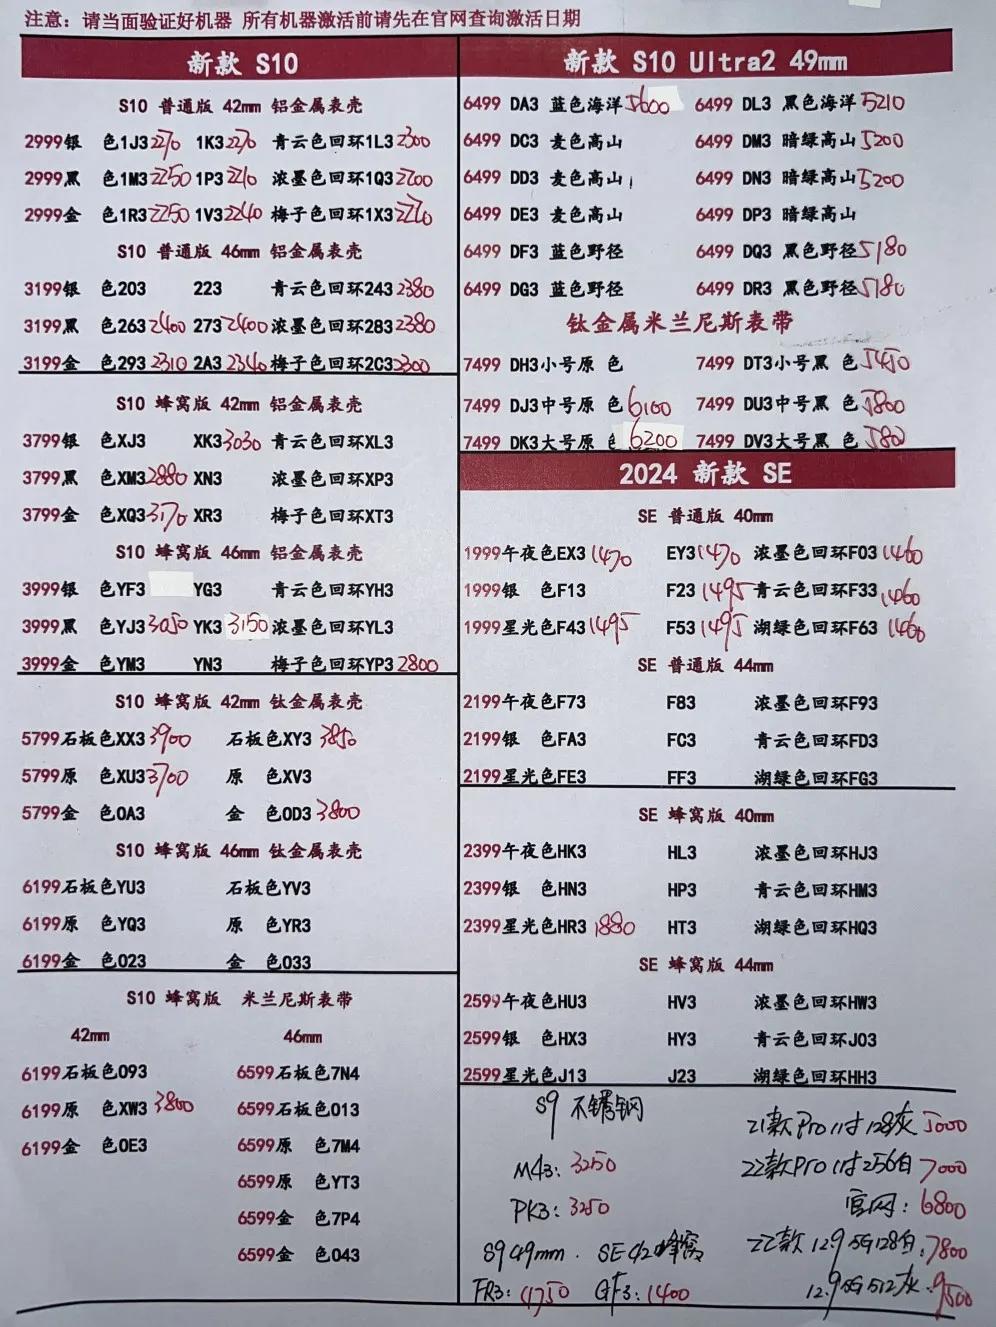 注意：请当面验证好机器 所有机器激活前请先在官网查询激活日期
新款 S10
S10 普通版 42mm 铝金属表壳
2999银 色1J3 2270 1K3 2270 青云色回环1L3 2300
2999黑 色1M3 2250 1P3 2210 浓墨色回环1Q3 2200
2999金 色1R3 2250 1V3 2240 梅子色回环1X3 2220
S10 普通版 46mm 铝金属表壳
3199银 色203 223 青云色回环243 2380
3199黑 色263 2400 273 2400 浓墨色回环283 2380
3199金 色293 2310 2A3 2340 梅子色回环2C3 2300
S10 蜂窝版 42mm 铝金属表壳
3799银 色XJ3 XK3 3030 青云色回环XL3
3799黑 色XM3 2880 XN3 浓墨色回环XP3
3799金 色XQ3 3170 XR3 梅子色回环XT3
S10 蜂窝版 46mm 铝金属表壳
3999银 色YF3 YG3 青云色回环YH3
3999黑 色YJ3 3050 YK3 3150 浓墨色回环YL3
3999金 色YM3 YN3 梅子色回环YP3 2800
S10 蜂窝版 42mm 钛金属表壳
5799石板色XX3 3900 石板色XY3 3850
5799原 色XU3 3700 原 色XV3
5799金 色0A3 金 色0D3 3800
S10 蜂窝版 46mm 钛金属表壳
6199石板色YU3 石板色YV3
6199原 色YQ3 原 色YR3
6199金 色023 金 色033
S10 蜂窝版 米兰尼斯表带
42mm 46mm
6199石板色093 6599石板色7N4
6199原 色XW3 3800 6599石板色013
6199金 色0E3 6599原 色7M4
6599原 色YT3
6599金 色7P4
6599金 色043
新款 S10 Ultra2 49mm
6499 DA3 蓝色海洋 5600 6499 DL3 黑色海洋 5210
6499 DC3 麦色高山 6499 DM3 暗绿高山 5200
6499 DD3 麦色高山 6499 DN3 暗绿高山 5200
6499 DE3 麦色高山 6499 DP3 暗绿高山
6499 DF3 蓝色野径 6499 DQ3 黑色野径 5180
6499 DG3 蓝色野径 6499 DR3 黑色野径 5180
钛金属米兰尼斯表带
7499 DH3小号原 色 7499 DT3小号黑 色 5450
7499 DJ3中号原 色 6100 7499 DU3中号黑 色 5800
7499 DK3大号原 色 6200 7499 DV3大号黑 色
2024 新款 SE
SE 普通版 40mm
1999午夜色EX3 1470 EY3 1470 浓墨色回环F03 1460
1999银 色F13 F23 1495 青云色回环F33 1460
1999星光色F43 1495 F53 1495 湖绿色回环F63 1460
SE 普通版 44mm
2199午夜色F73 F83 浓墨色回环F93
2199银 色FA3 FC3 青云色回环FD3
2199星光色FE3 FF3 湖绿色回环FG3
SE 蜂窝版 40mm
2399午夜色HK3 HL3 浓墨色回环HJ3
2399银 色HN3 HP3 青云色回环HM3
2399星光色HR3 1880 HT3 湖绿色回环HQ3
SE 蜂窝版 44mm
2599午夜色HU3 HV3 浓墨色回环HW3
2599银 色HX3 HY3 青云色回环J03
2599星光色J13 J23 湖绿色回环HH3
S9 不锈钢
M43: 3250
PK3: 3250
S9 49mm. SE 42蜂窝
FR3: 4750 GF3: 1400
21款Pro 11寸 128灰 5000
22款Pro 11寸 256白 7000
官网: 6800
22款 12.9 5G 128白: 7800
12.9 5G 512灰: 9500